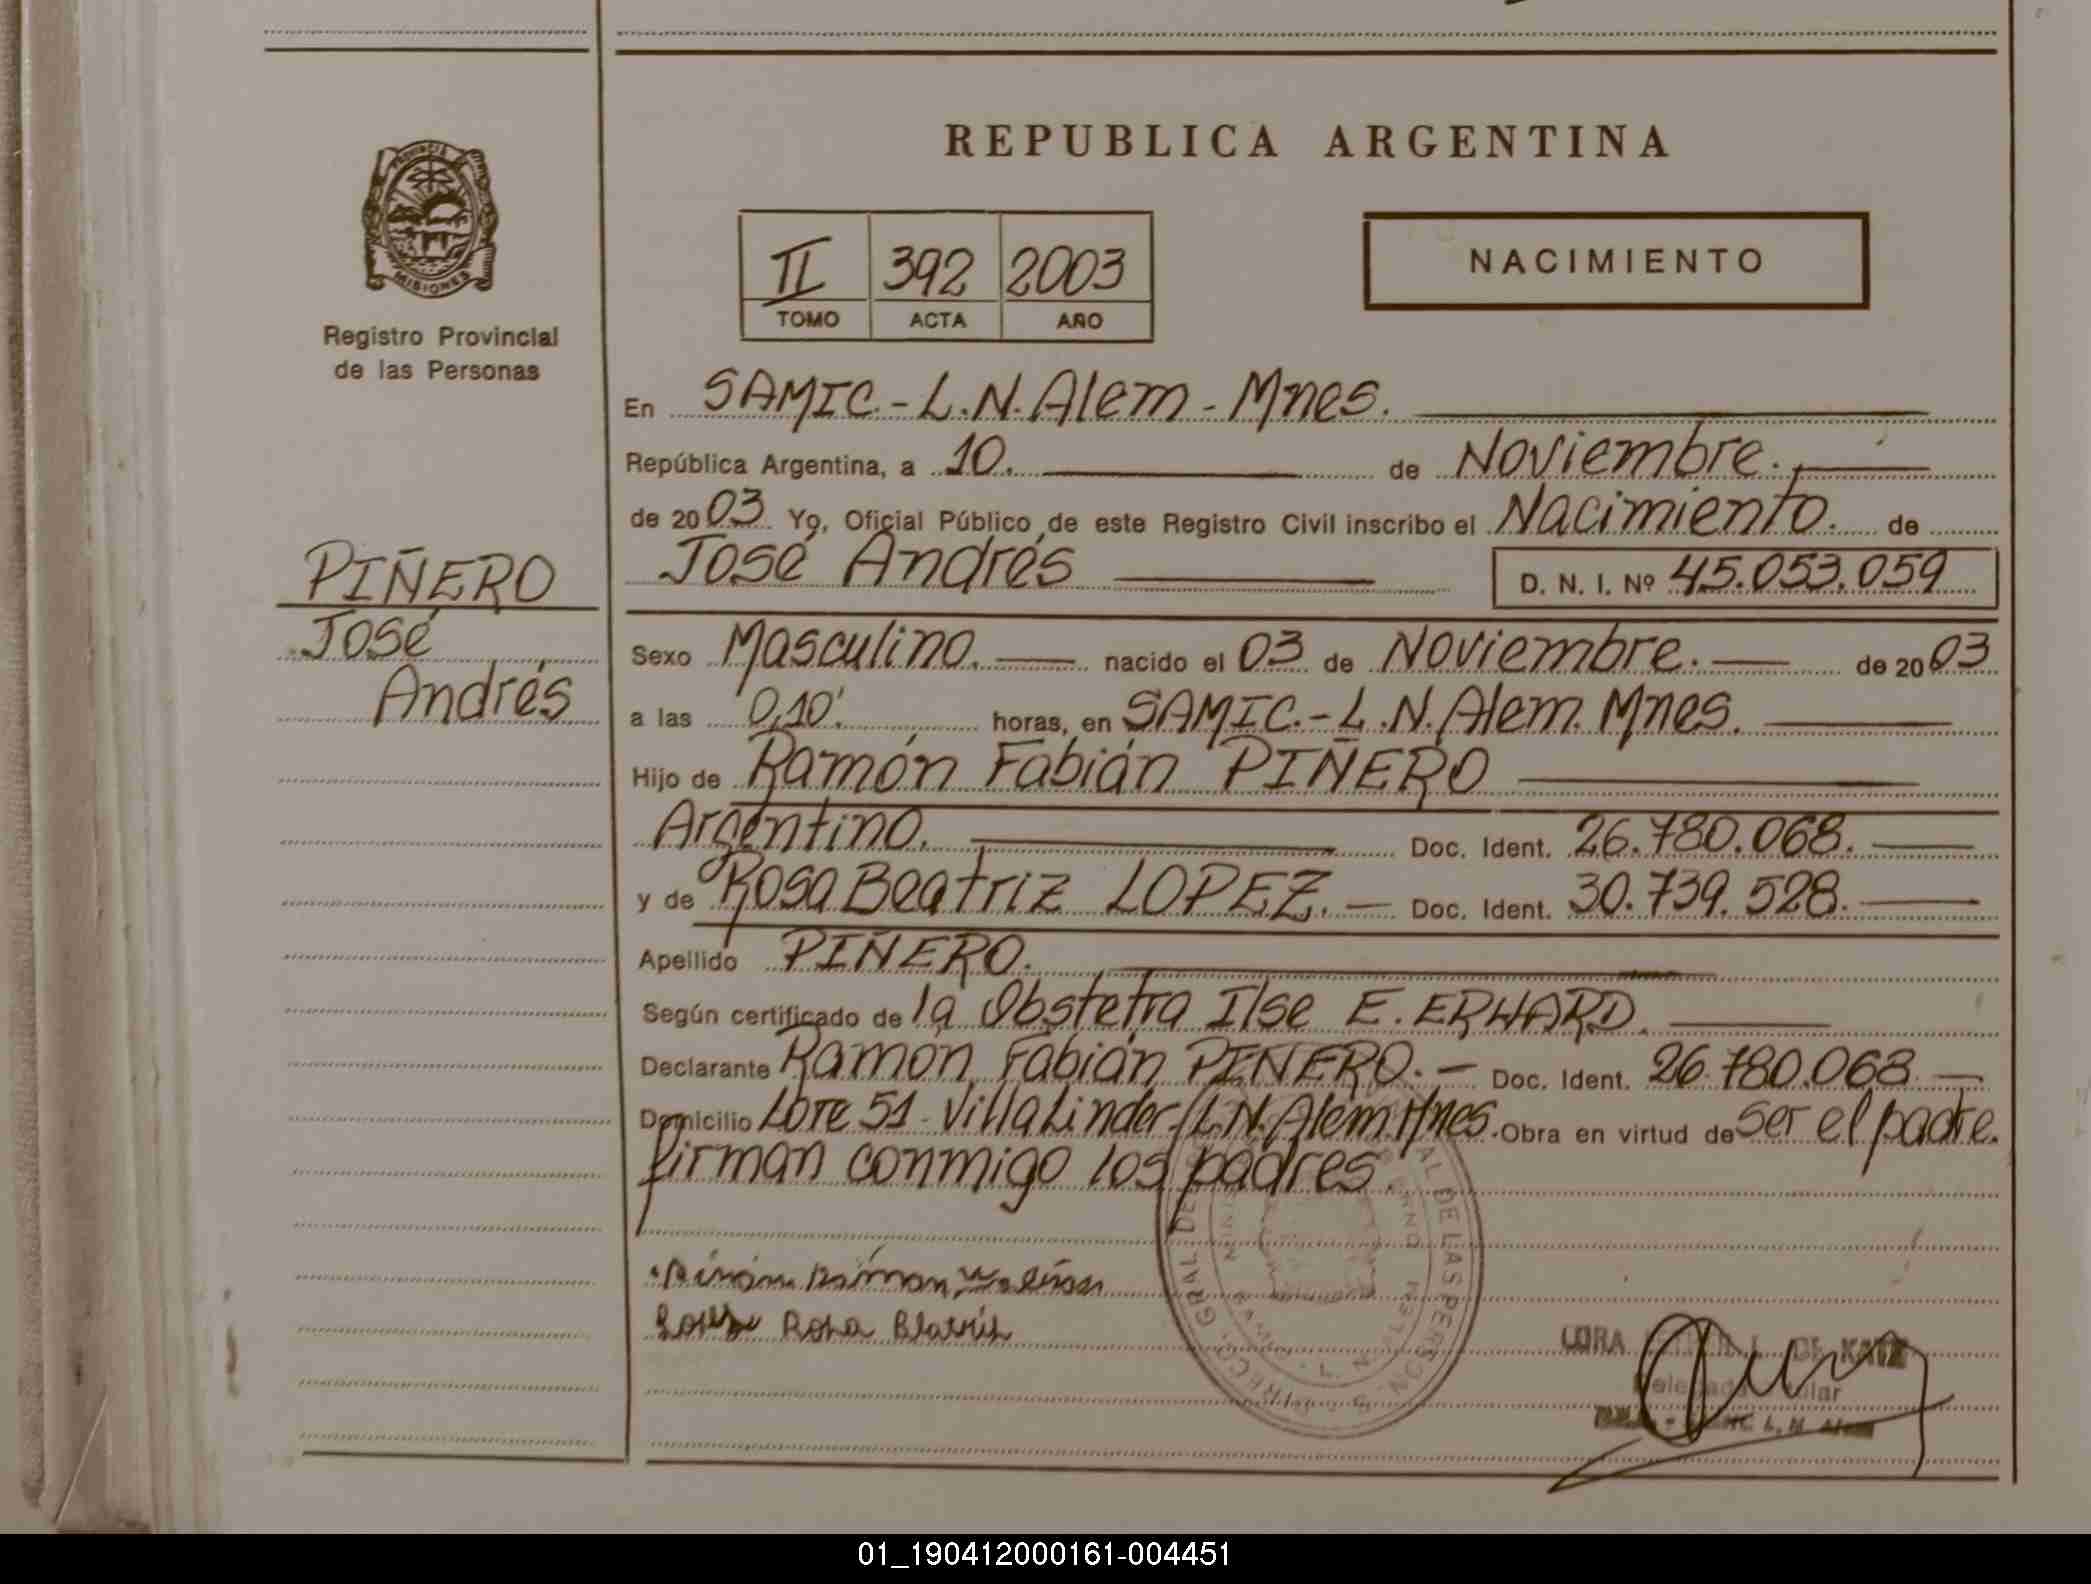 REPUBLICA ARGENTINA
PROVINCIA DE
MISIONES
Registro Provincial
de las Personas
II 392 2003
TOMO ACTA AÑO
NACIMIENTO
En SAMIC.-L.N.Alem-Mnes.
República Argentina, a 10. de Noviembre.
de 2003 Yo, Oficial Público de este Registro Civil inscribo el Nacimiento. de
José Andrés D. N. I. Nº 45.053.059
PIÑERO
José
Andrés
Sexo Masculino. nacido el 03 de Noviembre. de 2003
a las 0,10'. horas, en SAMIC.-L.N.Alem. Mnes.
Hijo de Ramón Fabián PIÑERO
Argentino. Doc. Ident. 26.780.068.
y de Rosa Beatriz LOPEZ. Doc. Ident. 30.739.528.
Apellido PIÑERO.
Según certificado de la Obstetra Ilse E. ERHARD.
Declarante Ramón Fabián PIÑERO.- Doc. Ident. 26.780.068
Domicilio Lote 51-Villa Linder/L.N.Alem Mnes. Obra en virtud de ser el padre.
firman conmigo los padres.
Rosa Beatriz
DE LAS PERSONAS
L. N. ALEM
DE KATZ
L. N. Alem
01_190412000161-004451